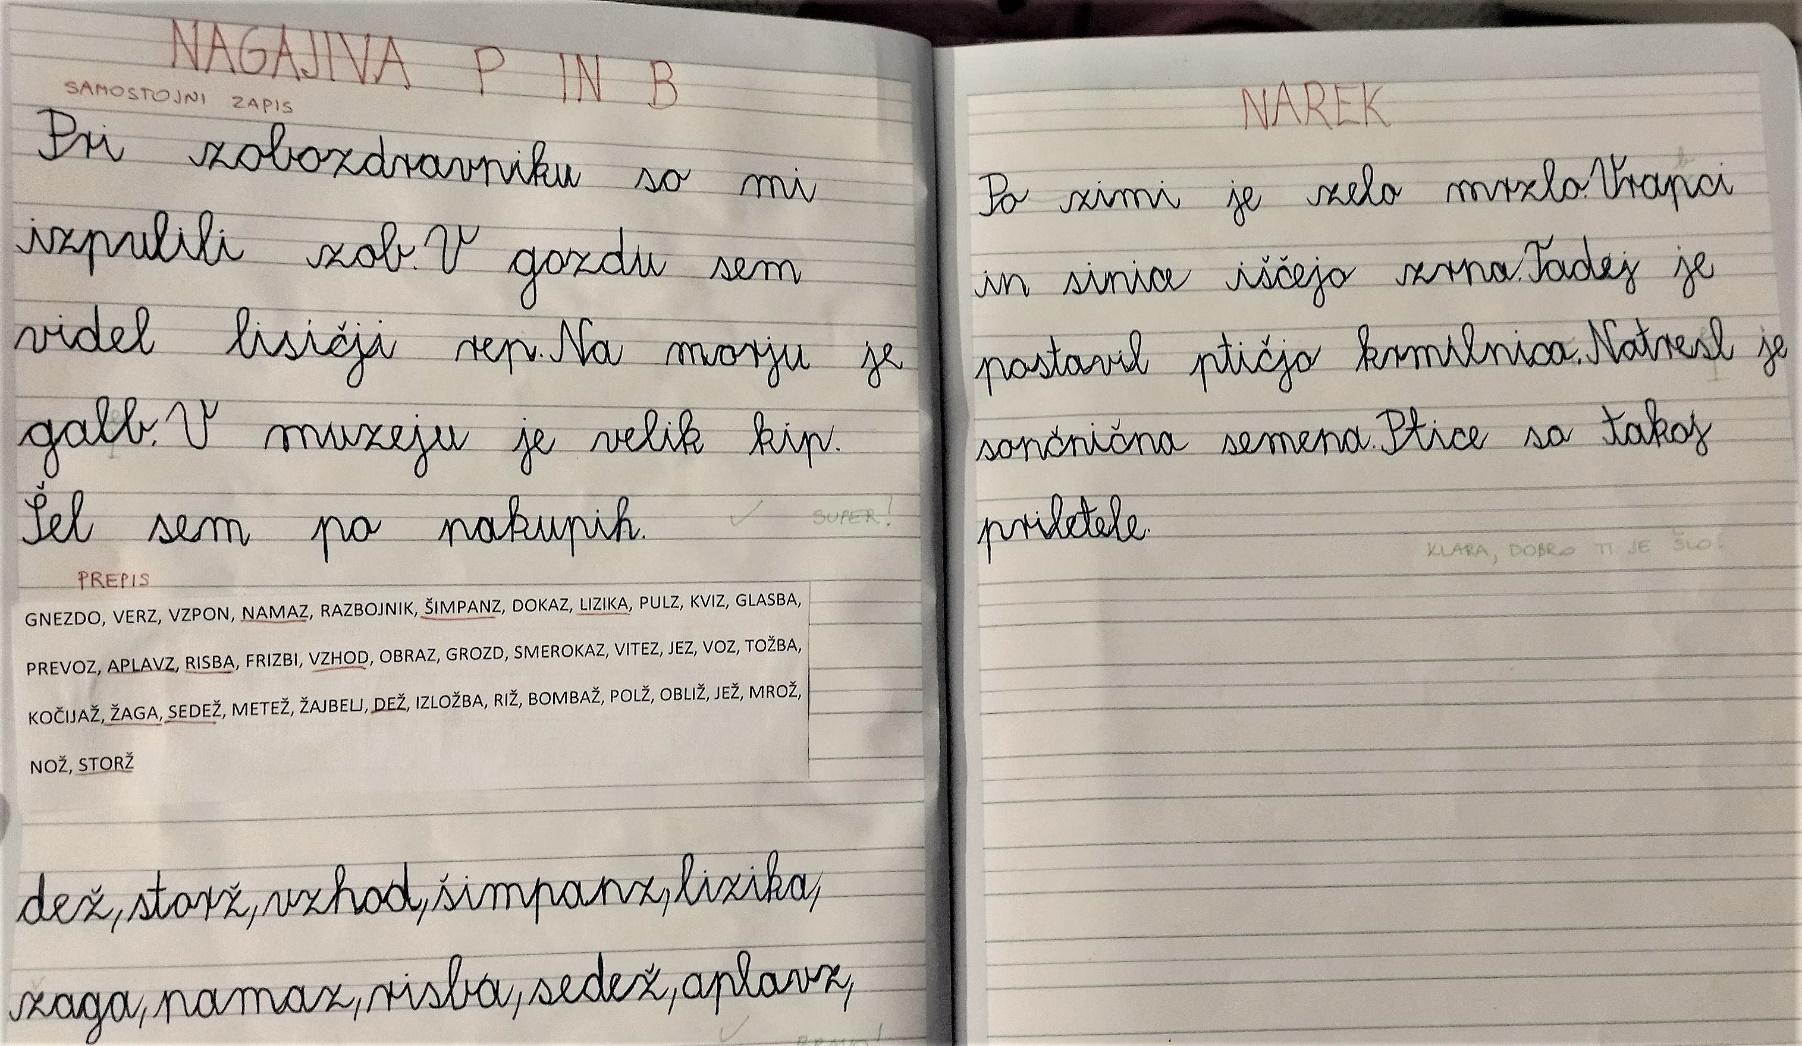 NAGAJIVA P IN B
SAMOSTOJNI ZAPIS
Pri zobozdravniku so mi
izpulili zob. V gozdu sem
videl lisičji rep. Na morju je
galb. V muzeju je velik kip.
Šel sem po nakupih.
SUPER!
PREPIS
GNEZDO, VERZ, VZPON, NAMAZ, RAZBOJNIK, ŠIMPANZ, DOKAZ, LIZIKA, PULZ, KVIZ, GLASBA,
PREVOZ, APLAVZ, RISBA, FRIZBI, VZHOD, OBRAZ, GROZD, SMEROKAZ, VITEZ, JEZ, VOZ, TOŽBA,
KOČIJAŽ, ŽAGA, SEDEŽ, METEŽ, ŽAJBELJ, DEŽ, IZLOŽBA, RIŽ, BOMBAŽ, POLŽ, OBLIŽ, JEŽ, MROŽ,
NOŽ, STORŽ
dež, storž, vzhod, šimpanz, lizika,
zaga, namaz, risba, sedež, aplavz,
NAREK
b
Po zimi je zelo mrzlo. Vrapci
in sinice iščejo zrna. Tadej je
postavil ptičjo krmilnico. Natresl je
sončnična semena. Ptice so takoj
priletele.
KLARA, DOBRO TI JE ŠLO!